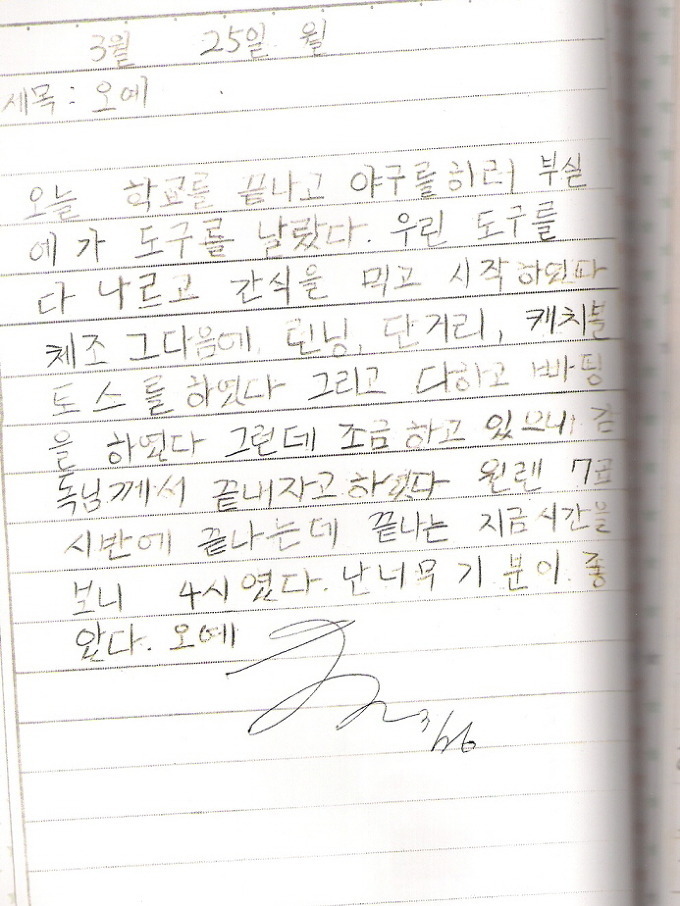 3월 25일 월
제목: 오예
오늘 학교를 끝나고 야구를하러 부실
에가 도구를 날랐다. 우린 도구를
다 나르고 간식을 먹고 시작하였다
체조 그다음에, 런닝, 단거리, 캐치볼
토스를하였다 그리고 다하고 빠띵
을 하였다 그런데 조금하고 있으니 감
독님께서 끝내자고하였다 원랜 7
시반에 끝나는데 끝나는 지금시간을
보니 4시였다. 난너무기분이 좋
았다. 오예
3/26